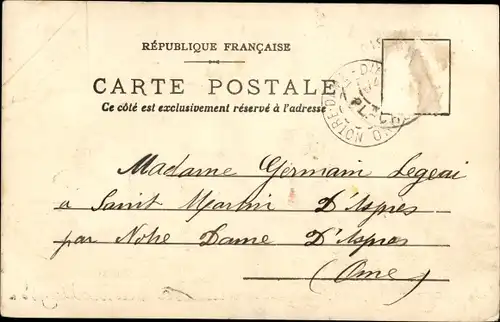 RÉPUBLIQUE FRANÇAISE
CARTE POSTALE
Ce côté est exclusivement réservé à l'adresse
Madame Germain Legeai
à Saint Martin D'Aspres
par Notre Dame D'Aspres
(Orne)